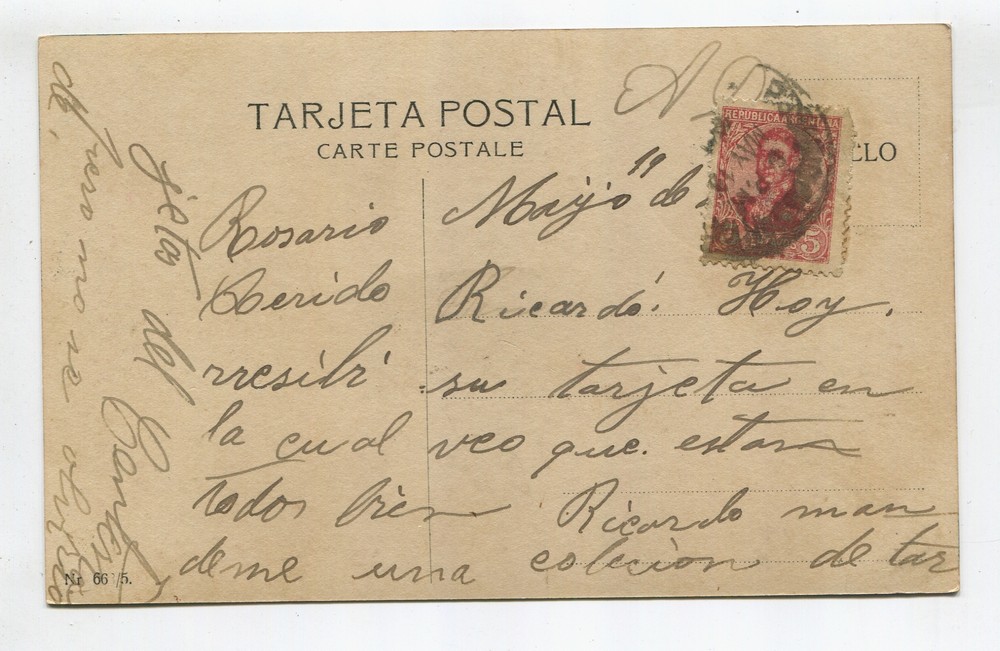 TARJETA POSTAL
CARTE POSTALE
REPUBLICA ARGENTINA
5
Rosario Mayo 19 de
Cerido Ricardo. Hoy.
rresibi su tarjeta en
la cual veo que estan
todos bien Ricardo man
deme una colecion de tar
jetas del
de, Pero no se olvide
Nr 66 5.